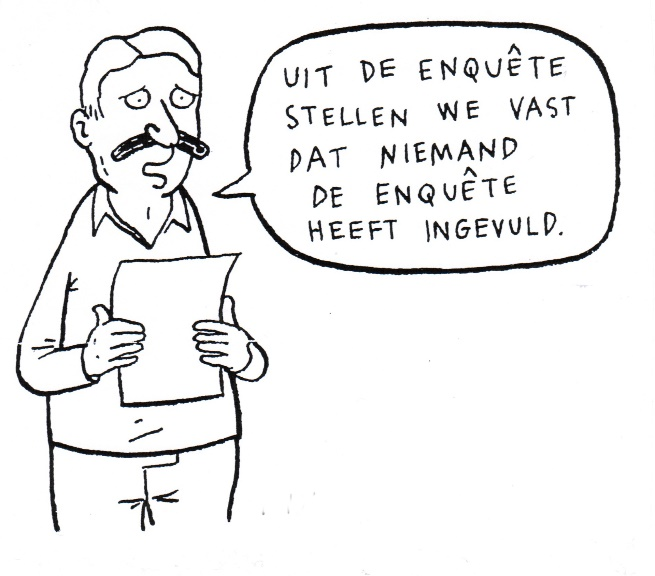 UIT DE ENQUÊTE
STELLEN WE VAST
DAT NIEMAND
DE ENQUÊTE
HEEFT INGEVULD.